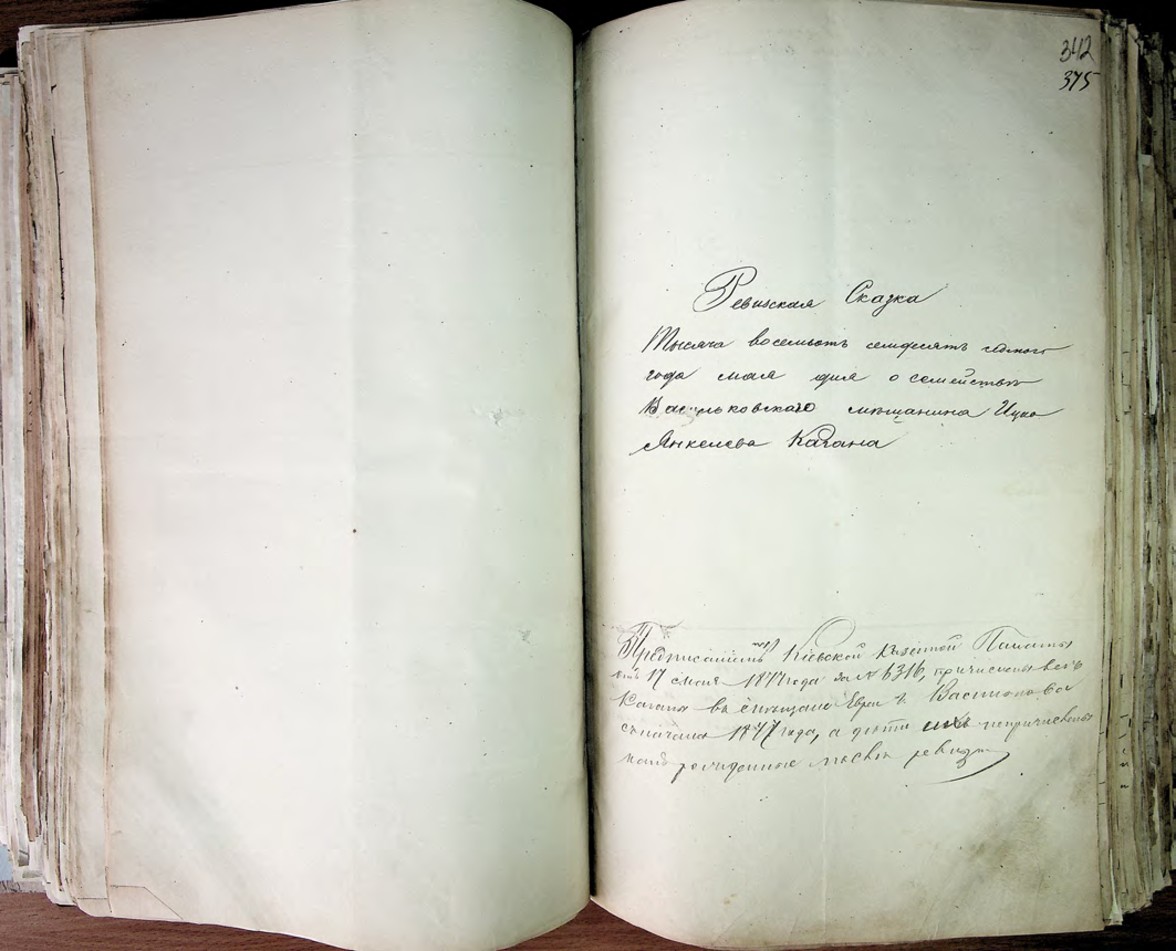 342
375
Ревизская Сказка
Тысяча восемьсотъ семдесятъ седмого
года мая дня о семействѣ
Васильковскаго мѣщанина Ицко
Янкелева Кагана
Предписаніемъ Кіевской Казенной Палаты
отъ 17 мая 1877 года за № 6316, причисленъ
Каганъ въ мѣщане Евреи г. Василькова
съ начала 1877 года, а дѣти непричислены
рожденные послѣ ревизіи